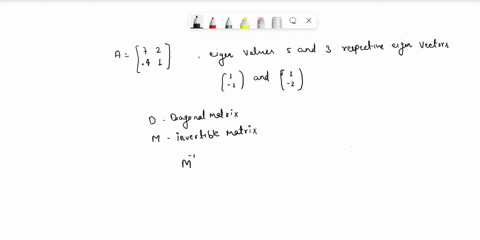 A = [7 2
-4 1] . eigen values 5 and 3 respective eigen vectors
(1
-1) and (1
-2)
D - Diagonal matrix
M - invertible matrix
M⁻¹